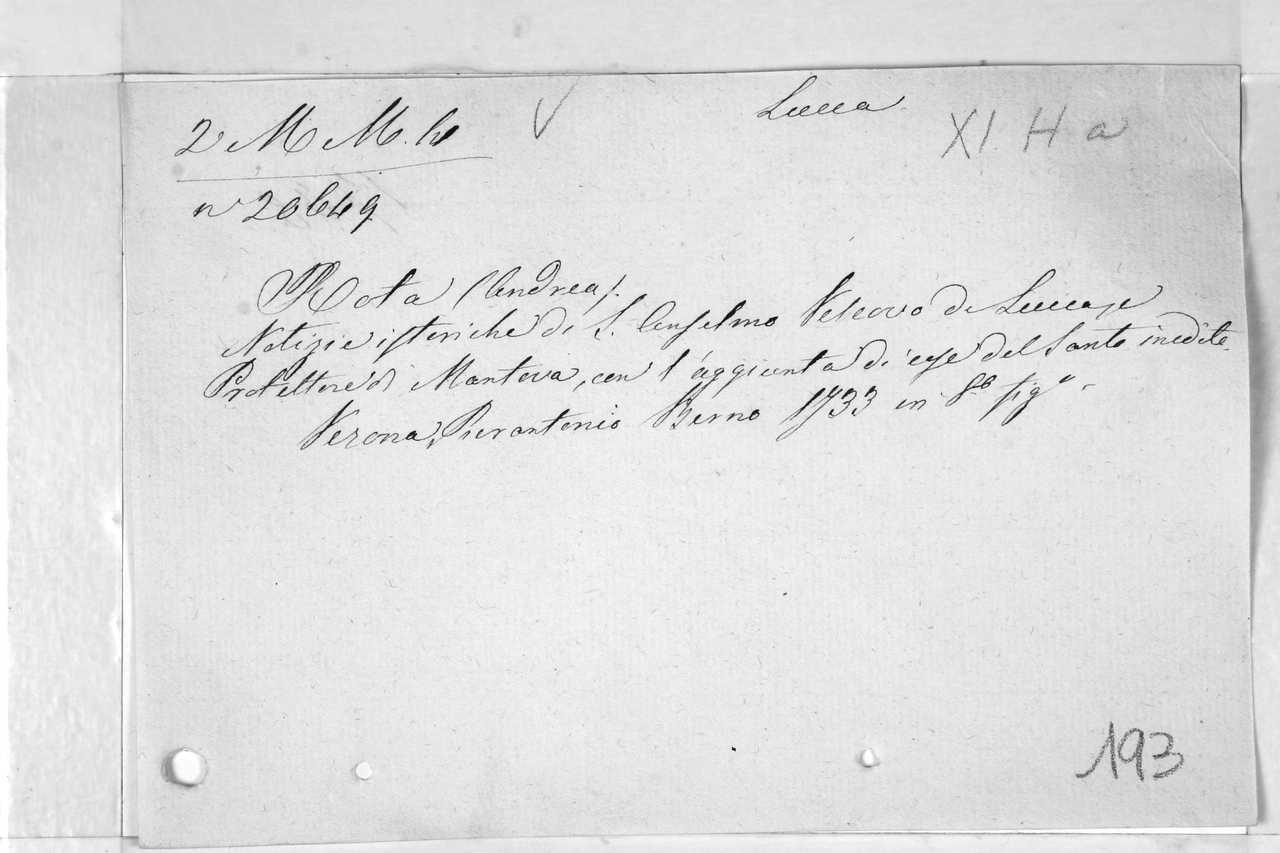 2 M M. h
Lucca
XI. H a
n 20649
Rota (Andrea).
Notizie istoriche di S. Anselmo Vescovo di Lucca, e
Protettore di Mantova, con l'aggiunta di cose del Santo inedite.
Verona, Pierantonio Berno 1733 in 8.º fig.
193